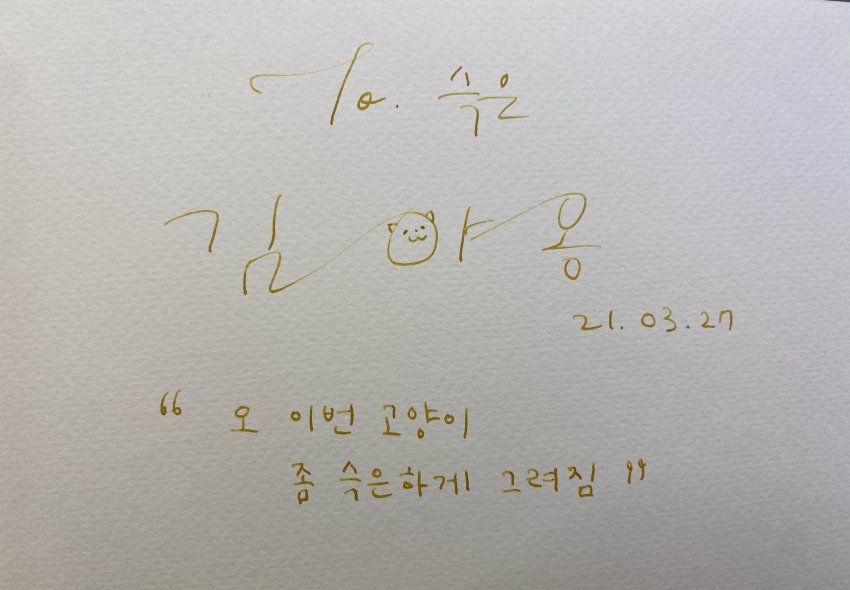 To. 슥은
김야옹
21.03.27
“ 오 이번 고양이
좀 슥은하게 그려짐 ”